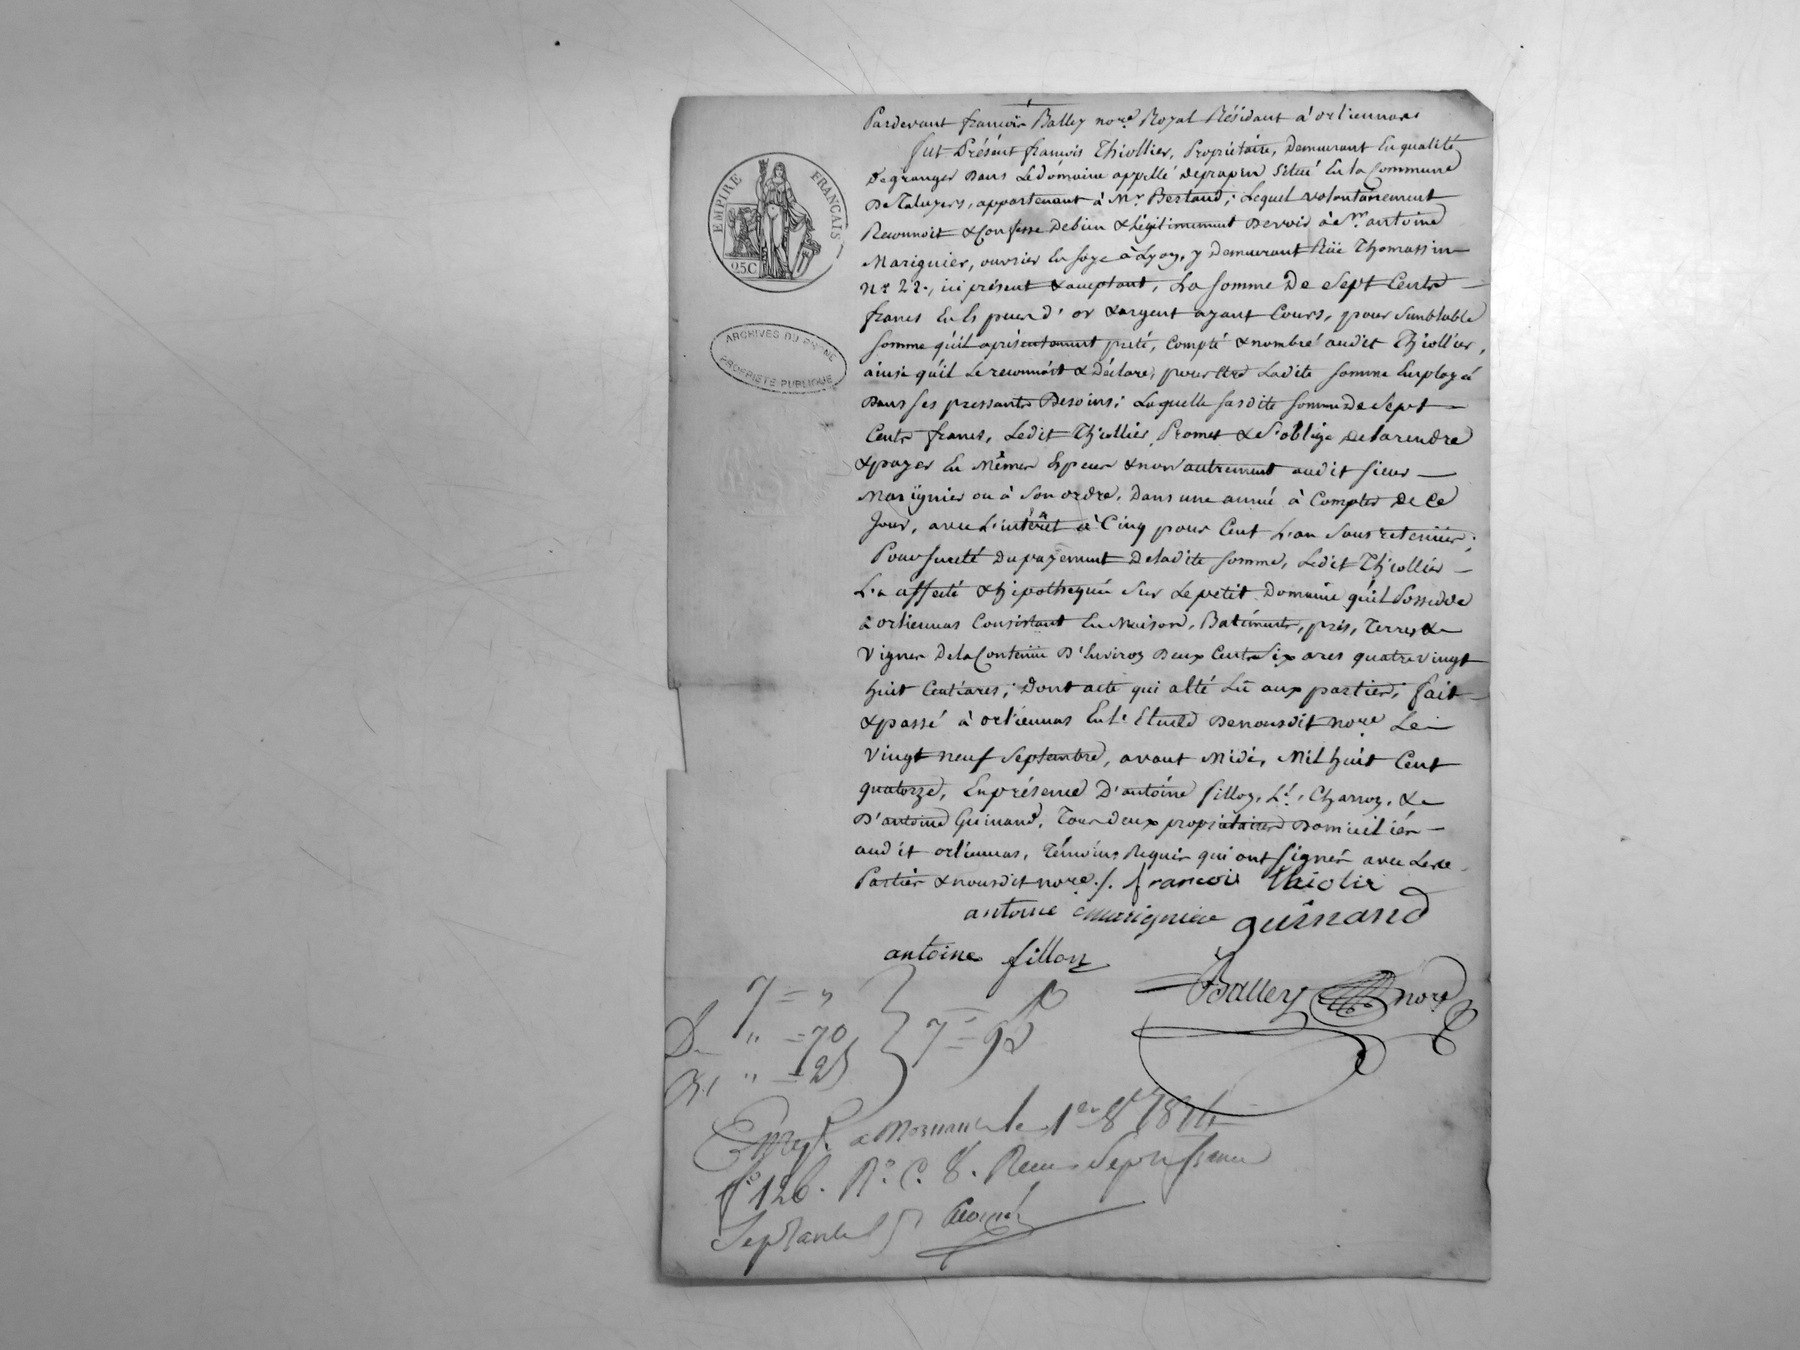 Pardevant françois Balley nore Royal Résidant à orliennas
fut Présent françois Thiollier, Propriétaire, Demeurant En qualité
De granger Dans Le domaine appellé Deprapin Situé En la Commune
De Taluyers, appartenant à Mr Bertaud; Lequel volontairement
Reconnoit & Confesse Debien & Légitimement Devoir à Sr antoine
Mariguier, ouvrier En Soye à Lyon, y Demeurant Rüe Thomassin
No 22., ici présent & acceptant, La somme De Sept Cents
francs En Especes d'or & argent ayant Cours, pour Semblable
Somme qu'il a présentement prété, Compté & nombré audit Thiollier,
ainsi qu'il Le reconnoit & Déclare, pour être Ladite somme Employée
Dans Ses pressants Besoins; Laquelle Susdite Somme De Sept
Cents francs, Ledit Thiollier Promet & S'oblige De la rendre
& payer En Mêmes Especes & non autrement audit Sieur
Mariguier ou à Son ordre, Dans une année à Compter De Ce
Jour, avec L'intérêt à Cinq pour Cent L'an Sans retenüe;
Pour Sureté Du payement De ladite Somme, Ledit Thiollier
L'a affecté & hipothequé Sur Le petit Domaine qu'il Possede
à orliennas Consistant En Maison, Batiments, prés, Terres &
Vignes De la Contenüe D'Environ Deux Cents Six ares quatre vingt
huit Centiares; Dont acte qui a été Lû aux parties; fait
& passé à orliennas En L'Etude De nousdit nore Le
Vingt neuf Septembre, avant Midi, Mil huit Cent
quatorze, En présence D'antoine fillon, Charron, &
D'antoine Guinand, Tous Deux propriétaires Domiciliés
audit orliennas, Témoins Requis qui ont Signés avec Les
Parties & nousdit nore ./. françois thiolir
antoine mariguier guinand
antoine fillon
Balley nore
EMPIRE FRANÇAIS
25C
ARCHIVES DU RHÔNE
PROPRIÉTÉ PUBLIQUE
7 = "
D " = 70
" = 25
7 = 95
Enregt a Mornant le 1er 8bre 1814
fo 126. Ro. C. 8. Recu Sept francs
Septante